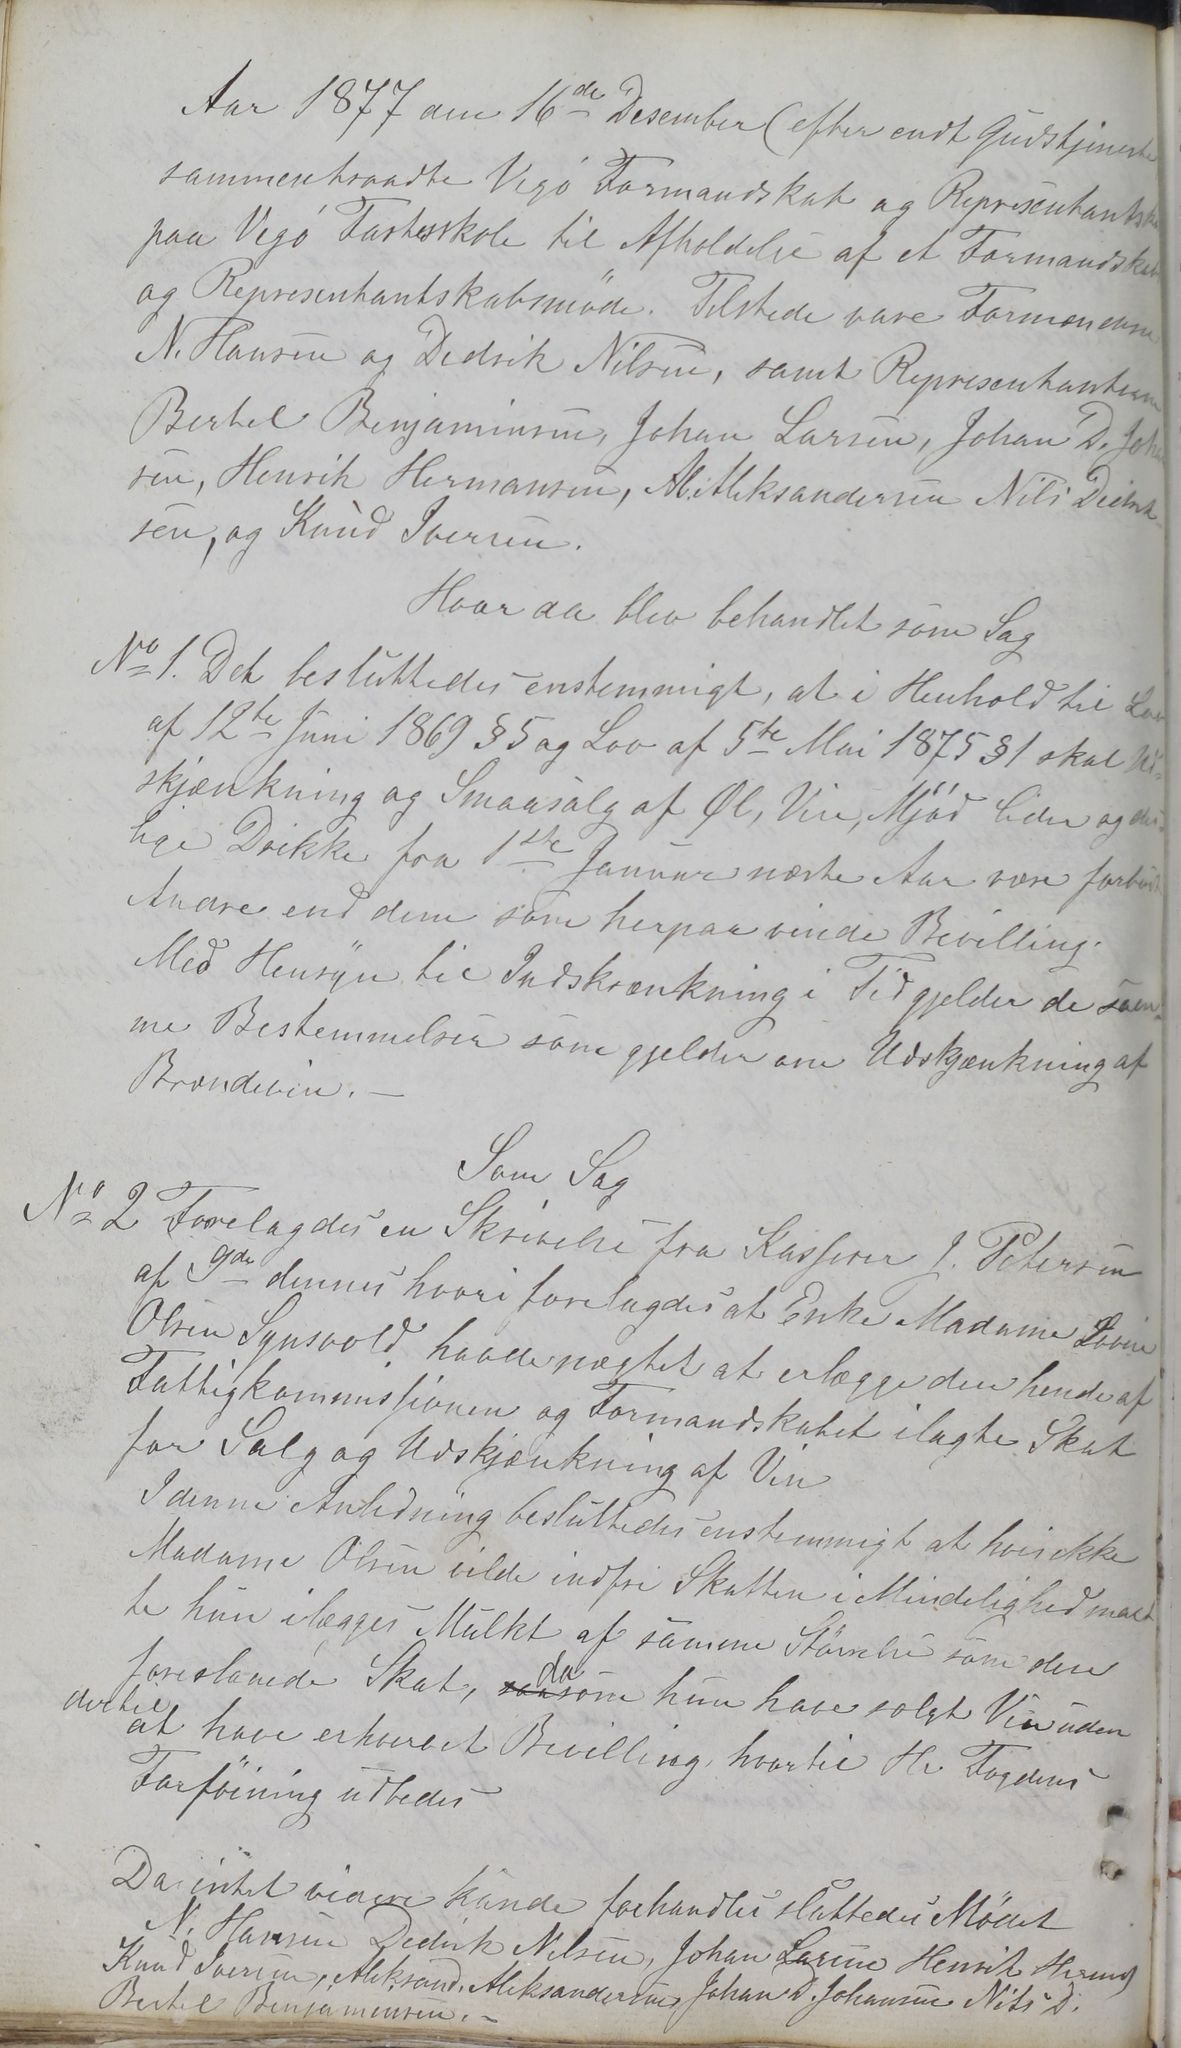 Aar 1877 den 16de Desember (efter endt Gudstjeneste
sammentraadte Vegö Formandskab og Representantska
paa Vegö Fastesskole til Afholdelse af et Formandskabs
og Representantskabsmöde. Tilstede vare Formændene
N. Hansen og Dedrik Nilsen, samt Representanterne
Bertel Benjaminsen, Johan Larsen, Johan D. Johan
sen, Henrik Hermansen, Al. Aleksandersen Nils Diderik
sen, og Knud Iversen.
Hvor da blev behandlet som Sag
No 1. Det besluttedes enstemmigt, at i Henhold til Lov
af 12te Juni 1869 § 5 og Lov af 5te Mai 1875 § 1 skal Ud-
skjænkning og Smaasalg af Øl, Vin, Mjöd Cider og des-
lige Drikke fra 1ste Januar næste Aar være forbudt
Andre end dem som herpaa vinde Bevilling.
Med Hensyn til Indskrænkning i Tid gjelder de sam-
me Bestemmelser som gjelder om Udskjænkning af
Brændevin. —
Som Sag
No 2 Forelagdes en Skrivelse fra Kasserer J. Petersen
af 9de dennes hvori forelagdes at Enke Madame Lovise
Olsen Synsvold havde nægtet at erlægge den hende af
Fattigkommissionen og Formandskabet ilagte Skat
for Salg og Udskjænkning af Vin
I denne Anledning besluttedes enstemmigt at hvis ikke
Madame Olsen vilde indfri Skatten i Mindelighed maat
te hun ilægges Mulkt af samme Størrelse som den
foreslaaede Skat, da som hun have solgt Vin uden
dertil at have erhvervet Bevilling, hvortil Hr Fogdens
Forföining udbedes
Da intet videre kunde forhandles sluttedes Mødet
N. Hansen Dedrik Nilsen, Johan Larsen Henrik Hermans
Knud Iversen, Aleksand. Aleksandersen, Johan D. Johansen Nils D.
Bertel Benjamensen. —